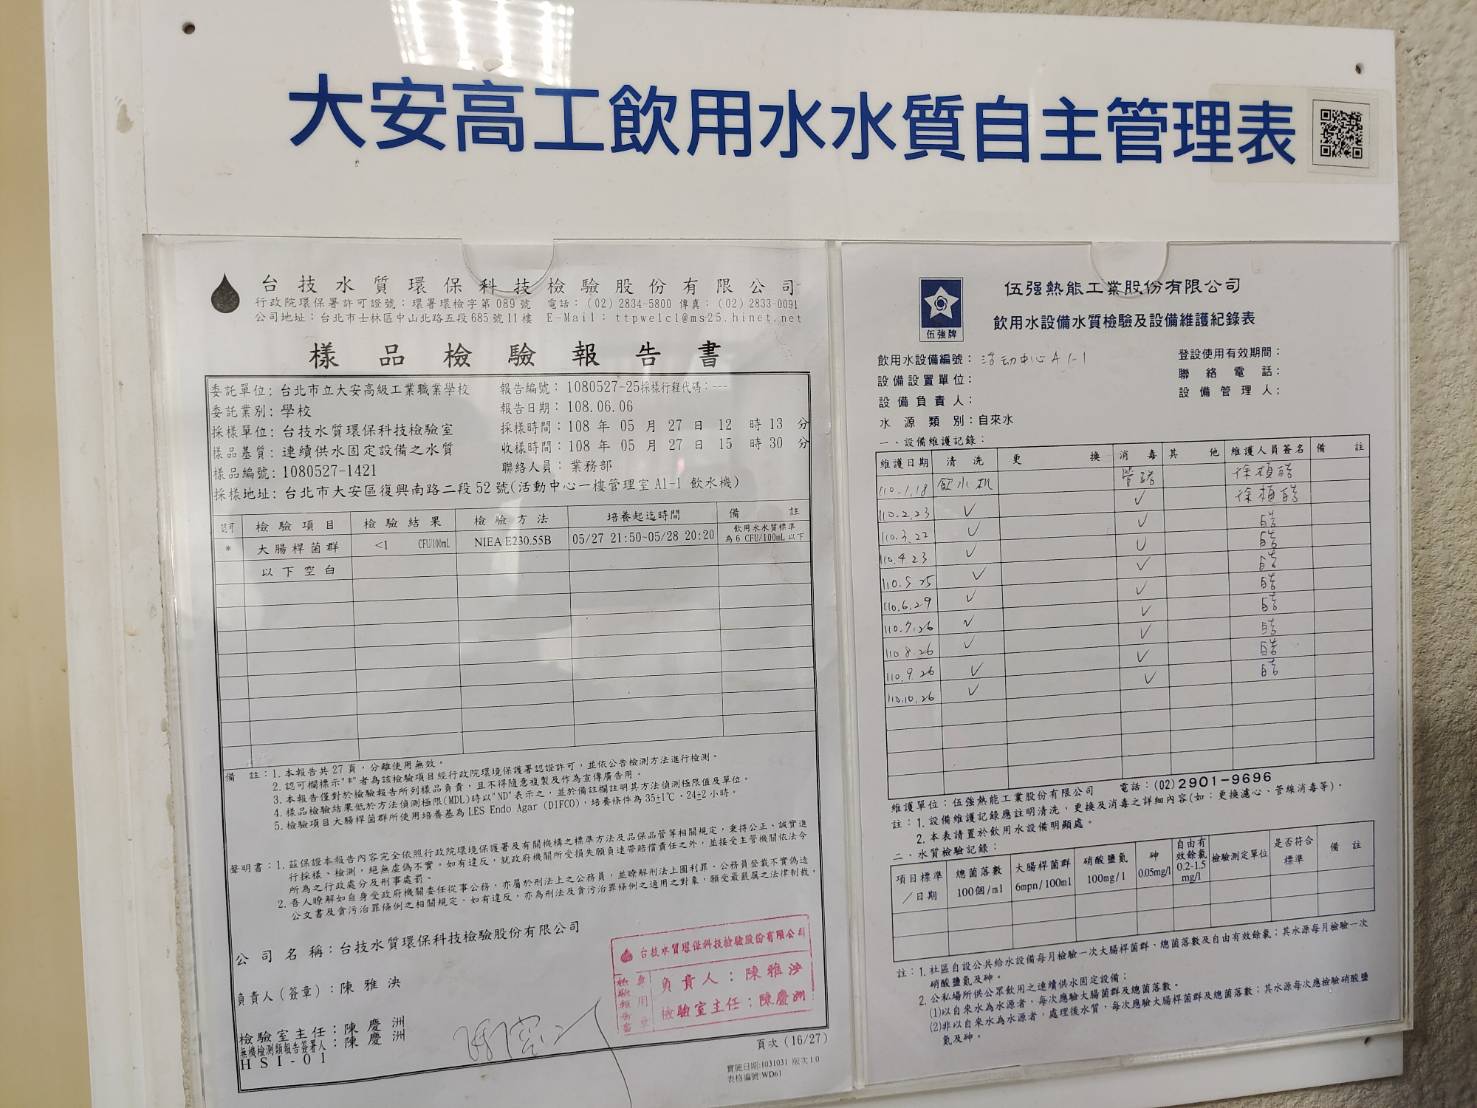 大安高工飲用水水質自主管理表
台技水質環保科技檢驗股份有限公司
行政院環保署許可證號：環署環檢字第089號 電話：(02) 2834-5800 傳真：(02) 2833-0091
公司地址：台北市士林區中山北路五段685號11樓 E-Mail：ttpwelcl@ms25.hinet.net
樣品檢驗報告書
委託單位：台北市立大安高級工業職業學校 報告編號：1080527-25採樣行程代碼：---
委託業別：學校 報告日期：108.06.06
採樣單位：台技水質環保科技檢驗室 採樣時間：108 年 05 月 27 日 12 時 13 分
樣品基質：連續供水固定設備之水質 收樣時間：108 年 05 月 27 日 15 時 30 分
樣品編號：1080527-1421 聯絡人員：業務部
採樣地址：台北市大安區復興南路二段52號(活動中心一樓管理室 A1-1 飲水機)
認可 檢驗項目 檢驗結果 檢驗方法 培養起迄時間 備註
* 大腸桿菌群 <1 CFU/100mL NIEA E230.55B 05/27 21:50~05/28 20:20 飲用水水質標準為6 CFU/100mL以下
以下空白
備註：1.本報告共27頁，分離使用無效。
2.認可欄標示"*"者為該檢驗項目經行政院環境保護署認證許可，並依公告檢測方法進行檢測。
3.本報告僅對於檢驗報告所列樣品負責，且不得隨意複製及作為宣傳廣告用。
4.樣品檢驗結果低於方法偵測極限(MDL)時以"ND"表示之，並於備註欄註明其方法偵測極限值及單位。
5.檢驗項目大腸桿菌群所使用培養基為LES Endo Agar (DIFCO)，培養條件為35±1℃、24±2小時。
聲明書：1.茲保證本報告內容完全依照行政院環境保護署及有關機構之標準方法及品保品管等相關規定，秉持公正、誠實進
行採樣、檢測，絕無虛偽不實。如有違反，就政府機關所受損失願負連帶賠償責任之外，並接受主管機關依法令
所為之行政處分及刑事處罰。
2.吾人瞭解如自身受政府機關委任從事公務，亦屬於刑法上之公務員，並瞭解刑法上圖利罪、公務員登載不實偽造
公文書及貪污治罪條例之相關規定，如有違反，亦為刑法及貪污治罪條例之適用之對象，願受最嚴厲之法律制裁。
公司名稱：台技水質環保科技檢驗股份有限公司
負責人(簽章)：陳雅泱
檢驗室主任：陳慶洲
無機檢測類報告簽署人：陳慶洲
HSI-01
台技水質環保科技檢驗股份有限公司
負責人：陳雅泱
檢驗室主任：陳慶洲
頁次 (16/27)
實施日期:1031031 版次 1.0
表格編號:WD61
伍強牌
伍强熱能工業股份有限公司
飲用水設備水質檢驗及設備維護紀錄表
飲用水設備編號：活動中心 A1-1 登設使用有效期間：
設備設置單位： 聯絡電話：
設備負責人： 設備管理人：
水源類別：自來水
一、設備維護記錄：
維護日期 清洗 更換 消毒 其他 維護人員簽名 備註
110.1.18 飲水機 管路
110.2.23 ✓ ✓
110.3.22 ✓ ✓ 皓
110.4.23 ✓ ✓ 皓
110.5.25 ✓ ✓ 皓
110.6.29 ✓ ✓ 皓
110.7.26 ✓ ✓ 皓
110.8.26 ✓ ✓ 皓
110.9.26 ✓ ✓ 皓
110.10.26 ✓ ✓ 皓
維護單位：伍强熱能工業股份有限公司 電話：(02)2901-9696
註：1.設備維護記錄應註明清洗，更換及消毒之詳細內容(如：更換濾心、管線消毒等)。
2.本表請置於飲用水設備明顯處。
二、水質檢驗記錄：
項目標準／日期 總菌落數 100個/ml 大腸桿菌群 6mpn/100ml 硝酸鹽氮 100mg/l 砷 0.05mg/l 自由有效餘氯 0.2-1.5 mg/l 檢驗測定單位 是否符合標準 備註
註：1.社區自設公共給水設備每月檢驗一次大腸桿菌群、總菌落數及自由有效餘氯；其水源每月檢驗一次
硝酸鹽氮及砷。
2.公私場所供公眾飲用之連續供水固定設備：
(1)以自來水為水源者，每次應驗大腸菌群及總菌落數。
(2)非以自來水為水源者，處理後水質，每次應驗大腸桿菌群及總菌落數；其水源每次應檢驗硝酸鹽
氮及砷。